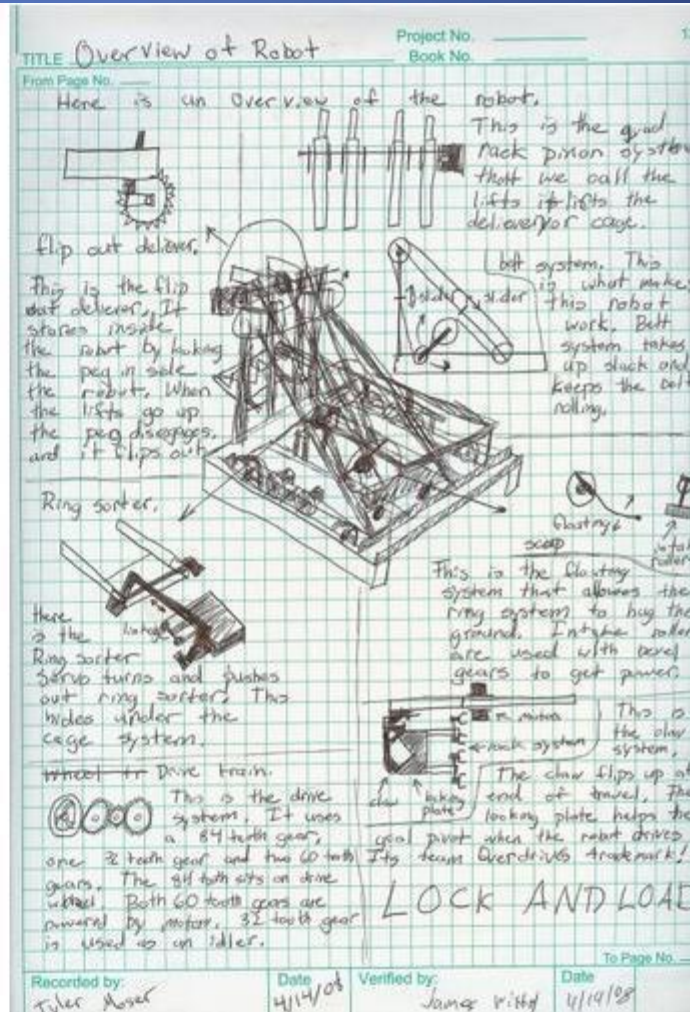 TITLE Overview of Robot
Project No.
Book No.
From Page No.
Here is an Overview of the robot.
This is the quad
rack pinon system
that we call the
lifts it lifts the
cage.
flip out deliever.
This is the flip
out deliever. It
stores inside
the robot by
the peg in side
the robot. When
the lifts go up
the peg disengages.
and it flips out
slider
slider
belt system. This
is what make
this robot
work. Belt
system takes
up slack and
keeps the belt
rolling.
Ring sorter.
linkage
Here
is the
Ring sorter
Servo turns and pushes
out ring sorter. This
hides under the
cage system.
floating
scoop
intake
roller
This is the floating
system that allowes the
ring system to hug the
ground. Intake roller
are used with bevel
gears to get power.
motor
rack system
claw
plate
This is
the claw
system.
The claw flips up at
end of travel. The
looking plate helps the
goal pivot when the robot drives
Its team Overdrives trademark!
LOCK AND LOAD
Drive train.
This is the drive
system. It uses
a 84 tooth gear,
one 32 tooth gear and two 60 tooth
gears. The 84 tooth sits on drive
wheel. Both 60 tooth gears are
powered by motors. 32 tooth gear
is used as an idler.
To Page No.
Recorded by:
Tyler Moser
Date
4/14/08
Verified by:
James
Date
4/14/08